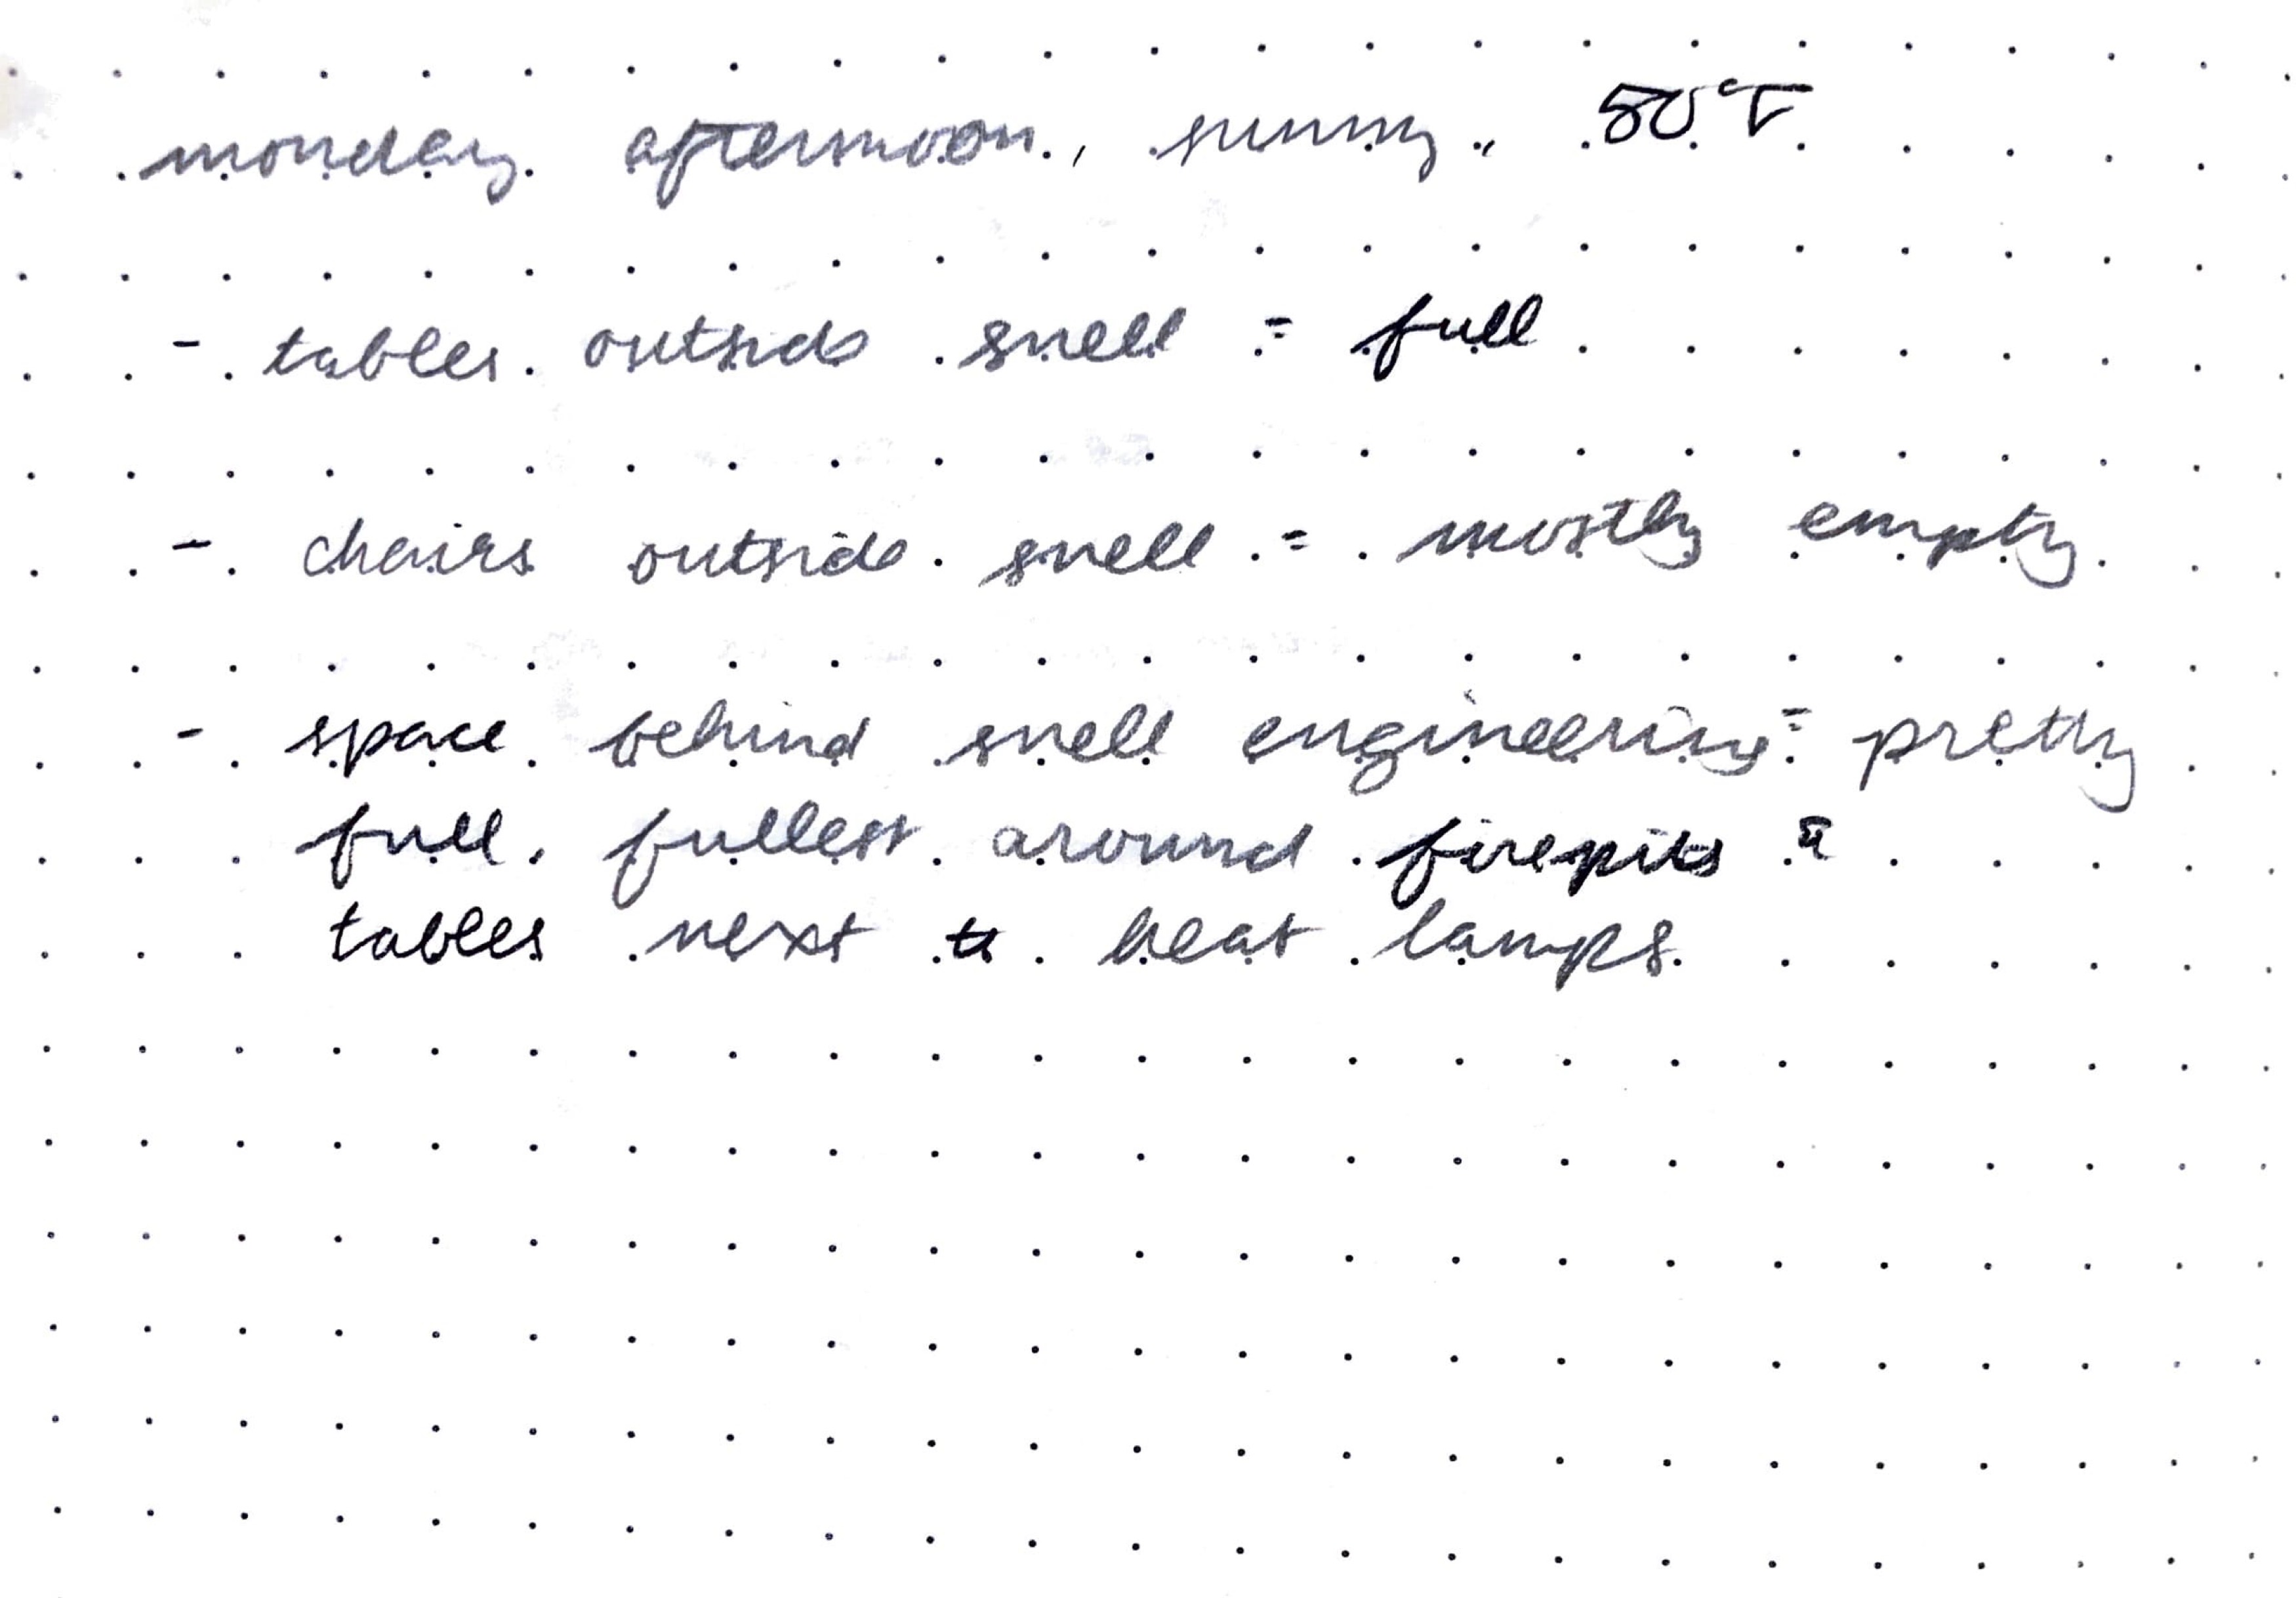 monday afternoon, sunny, 50°F
- tables outside snell = full
- chairs outside snell = mostly empty
- space behind snell engineering = pretty
full. fullest around firepits &
tables next to heat lamps.